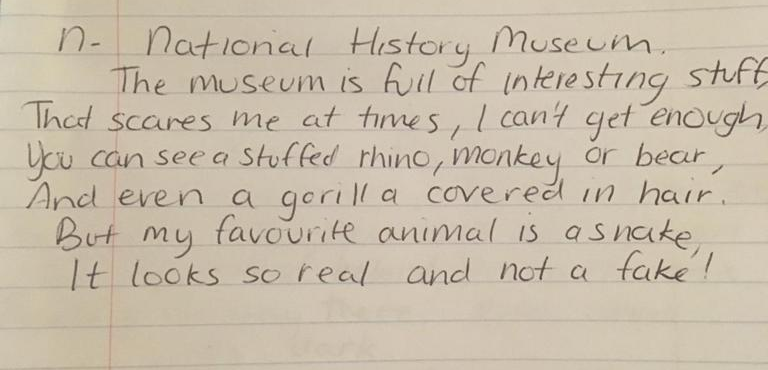 n- National History Museum.
The museum is full of interesting stuff,
That scares me at times, I can't get enough,
You can see a stuffed rhino, monkey or bear,
And even a gorilla covered in hair.
But my favourite animal is a snake,
It looks so real and not a fake!